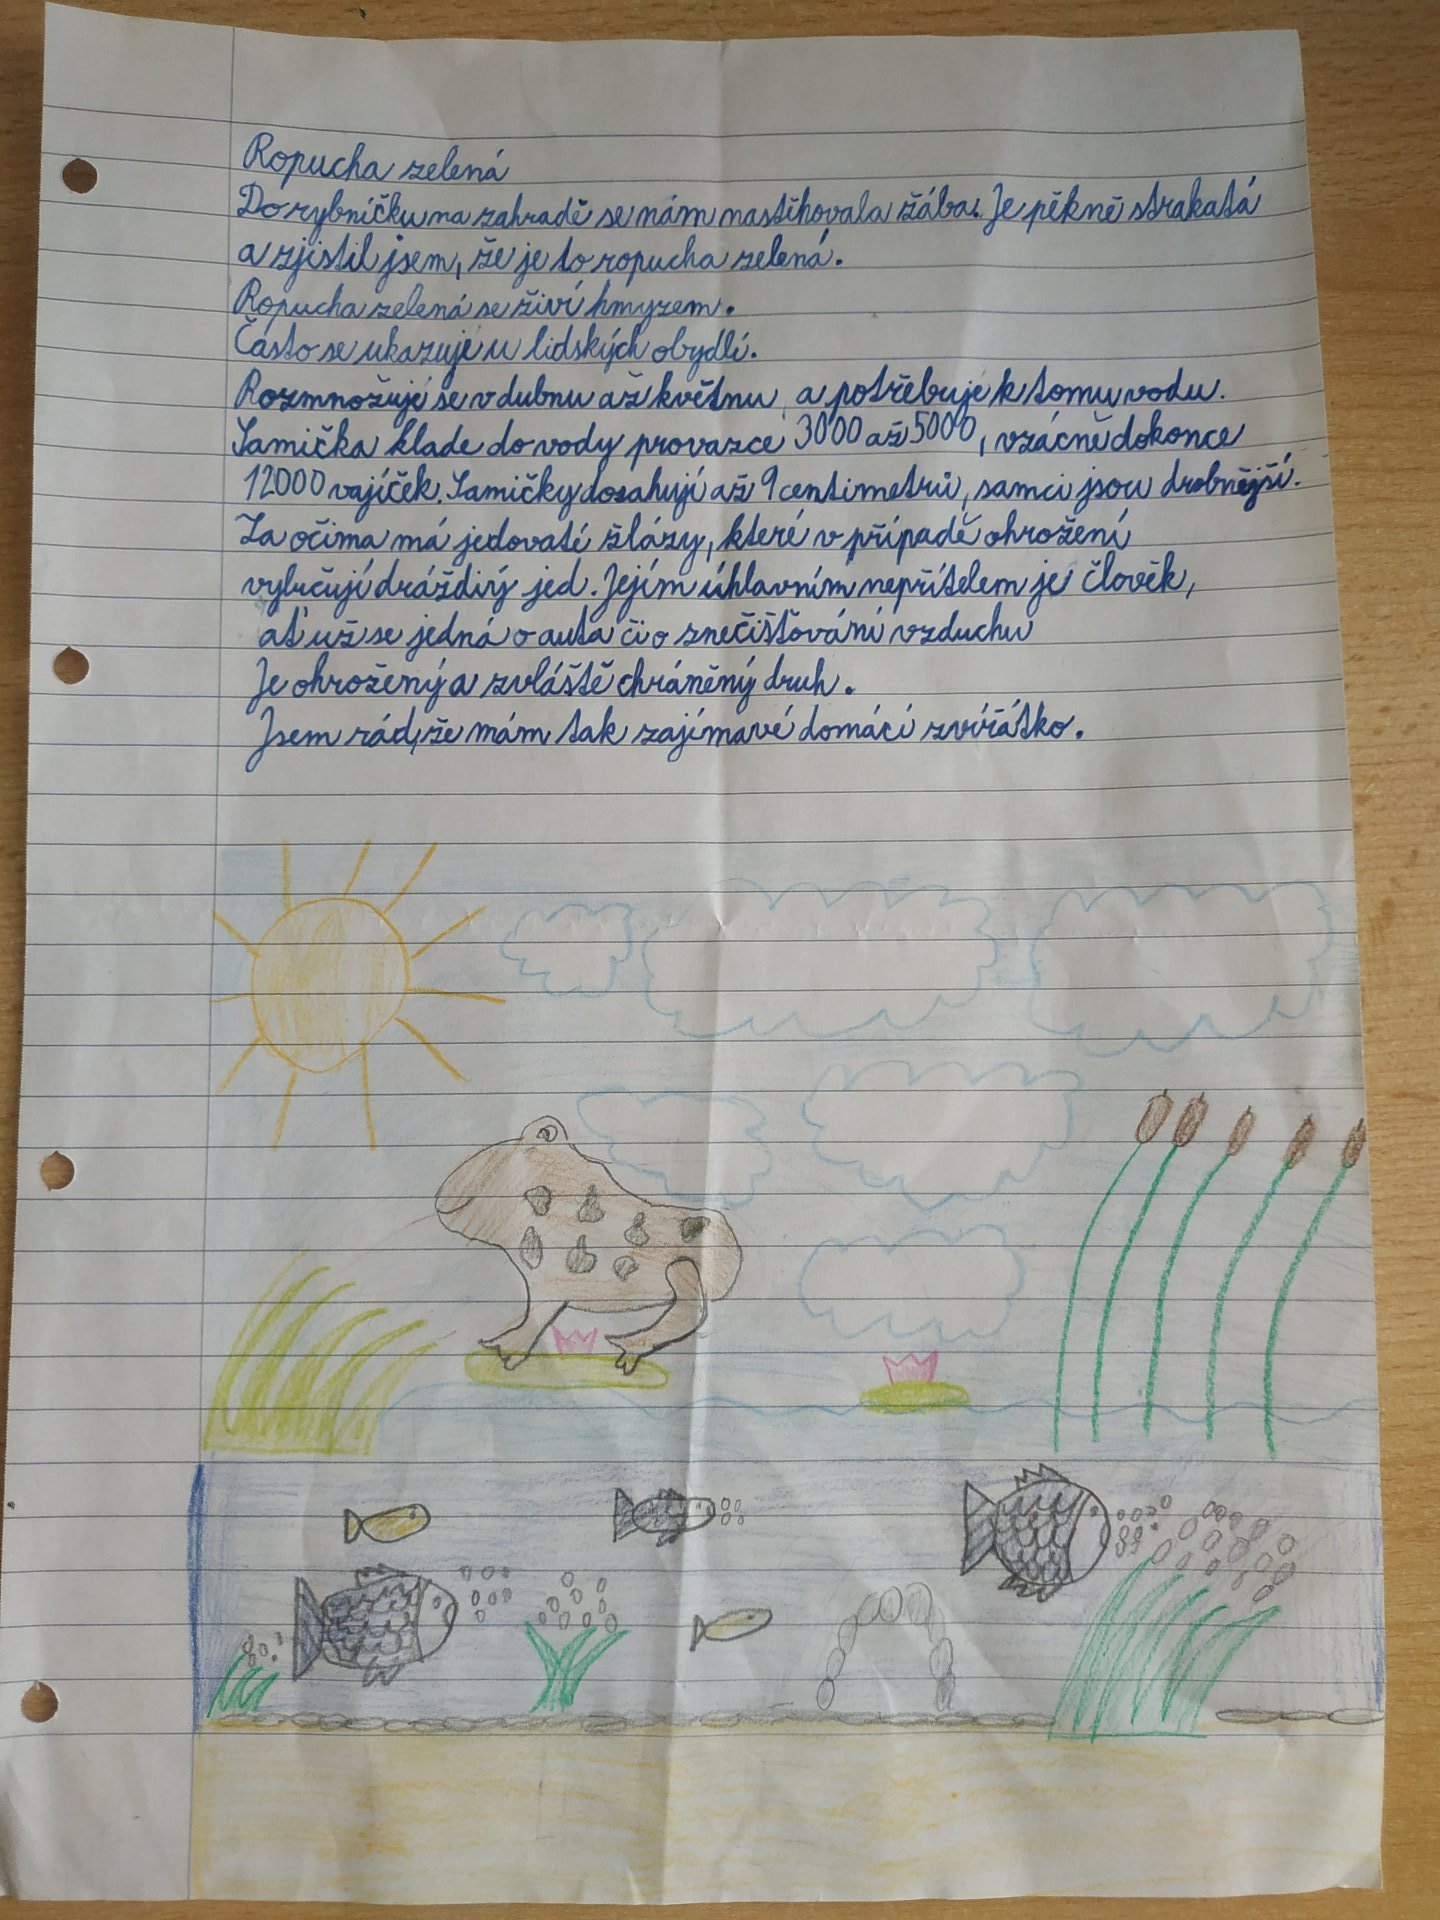 Ropucha zelená
Do rybníčku na zahradě se nám nastěhovala žába. Je pěkně strakatá
a zjistil jsem, že je to ropucha zelená.
Ropucha zelená se živí hmyzem.
Často se ukazuje u lidských obydlí.
Rozmnožuje se v dubnu až květnu, a potřebuje k tomu vodu.
Samička klade do vody provazce 3000 až 5000, vzácně dokonce
12000 vajíček. Samičky dosahují až 9 centimetrů, samci jsou drobnější.
Za očima má jedovaté žlázy, které v případě ohrožení
vylučují dráždivý jed. Jejím úhlavním nepřítelem je člověk,
ať už se jedná o auta či o znečišťování vzduchu
Je ohrožený a zvláště chráněný druh.
Jsem rád, že mám tak zajímavé domácí zvířátko.